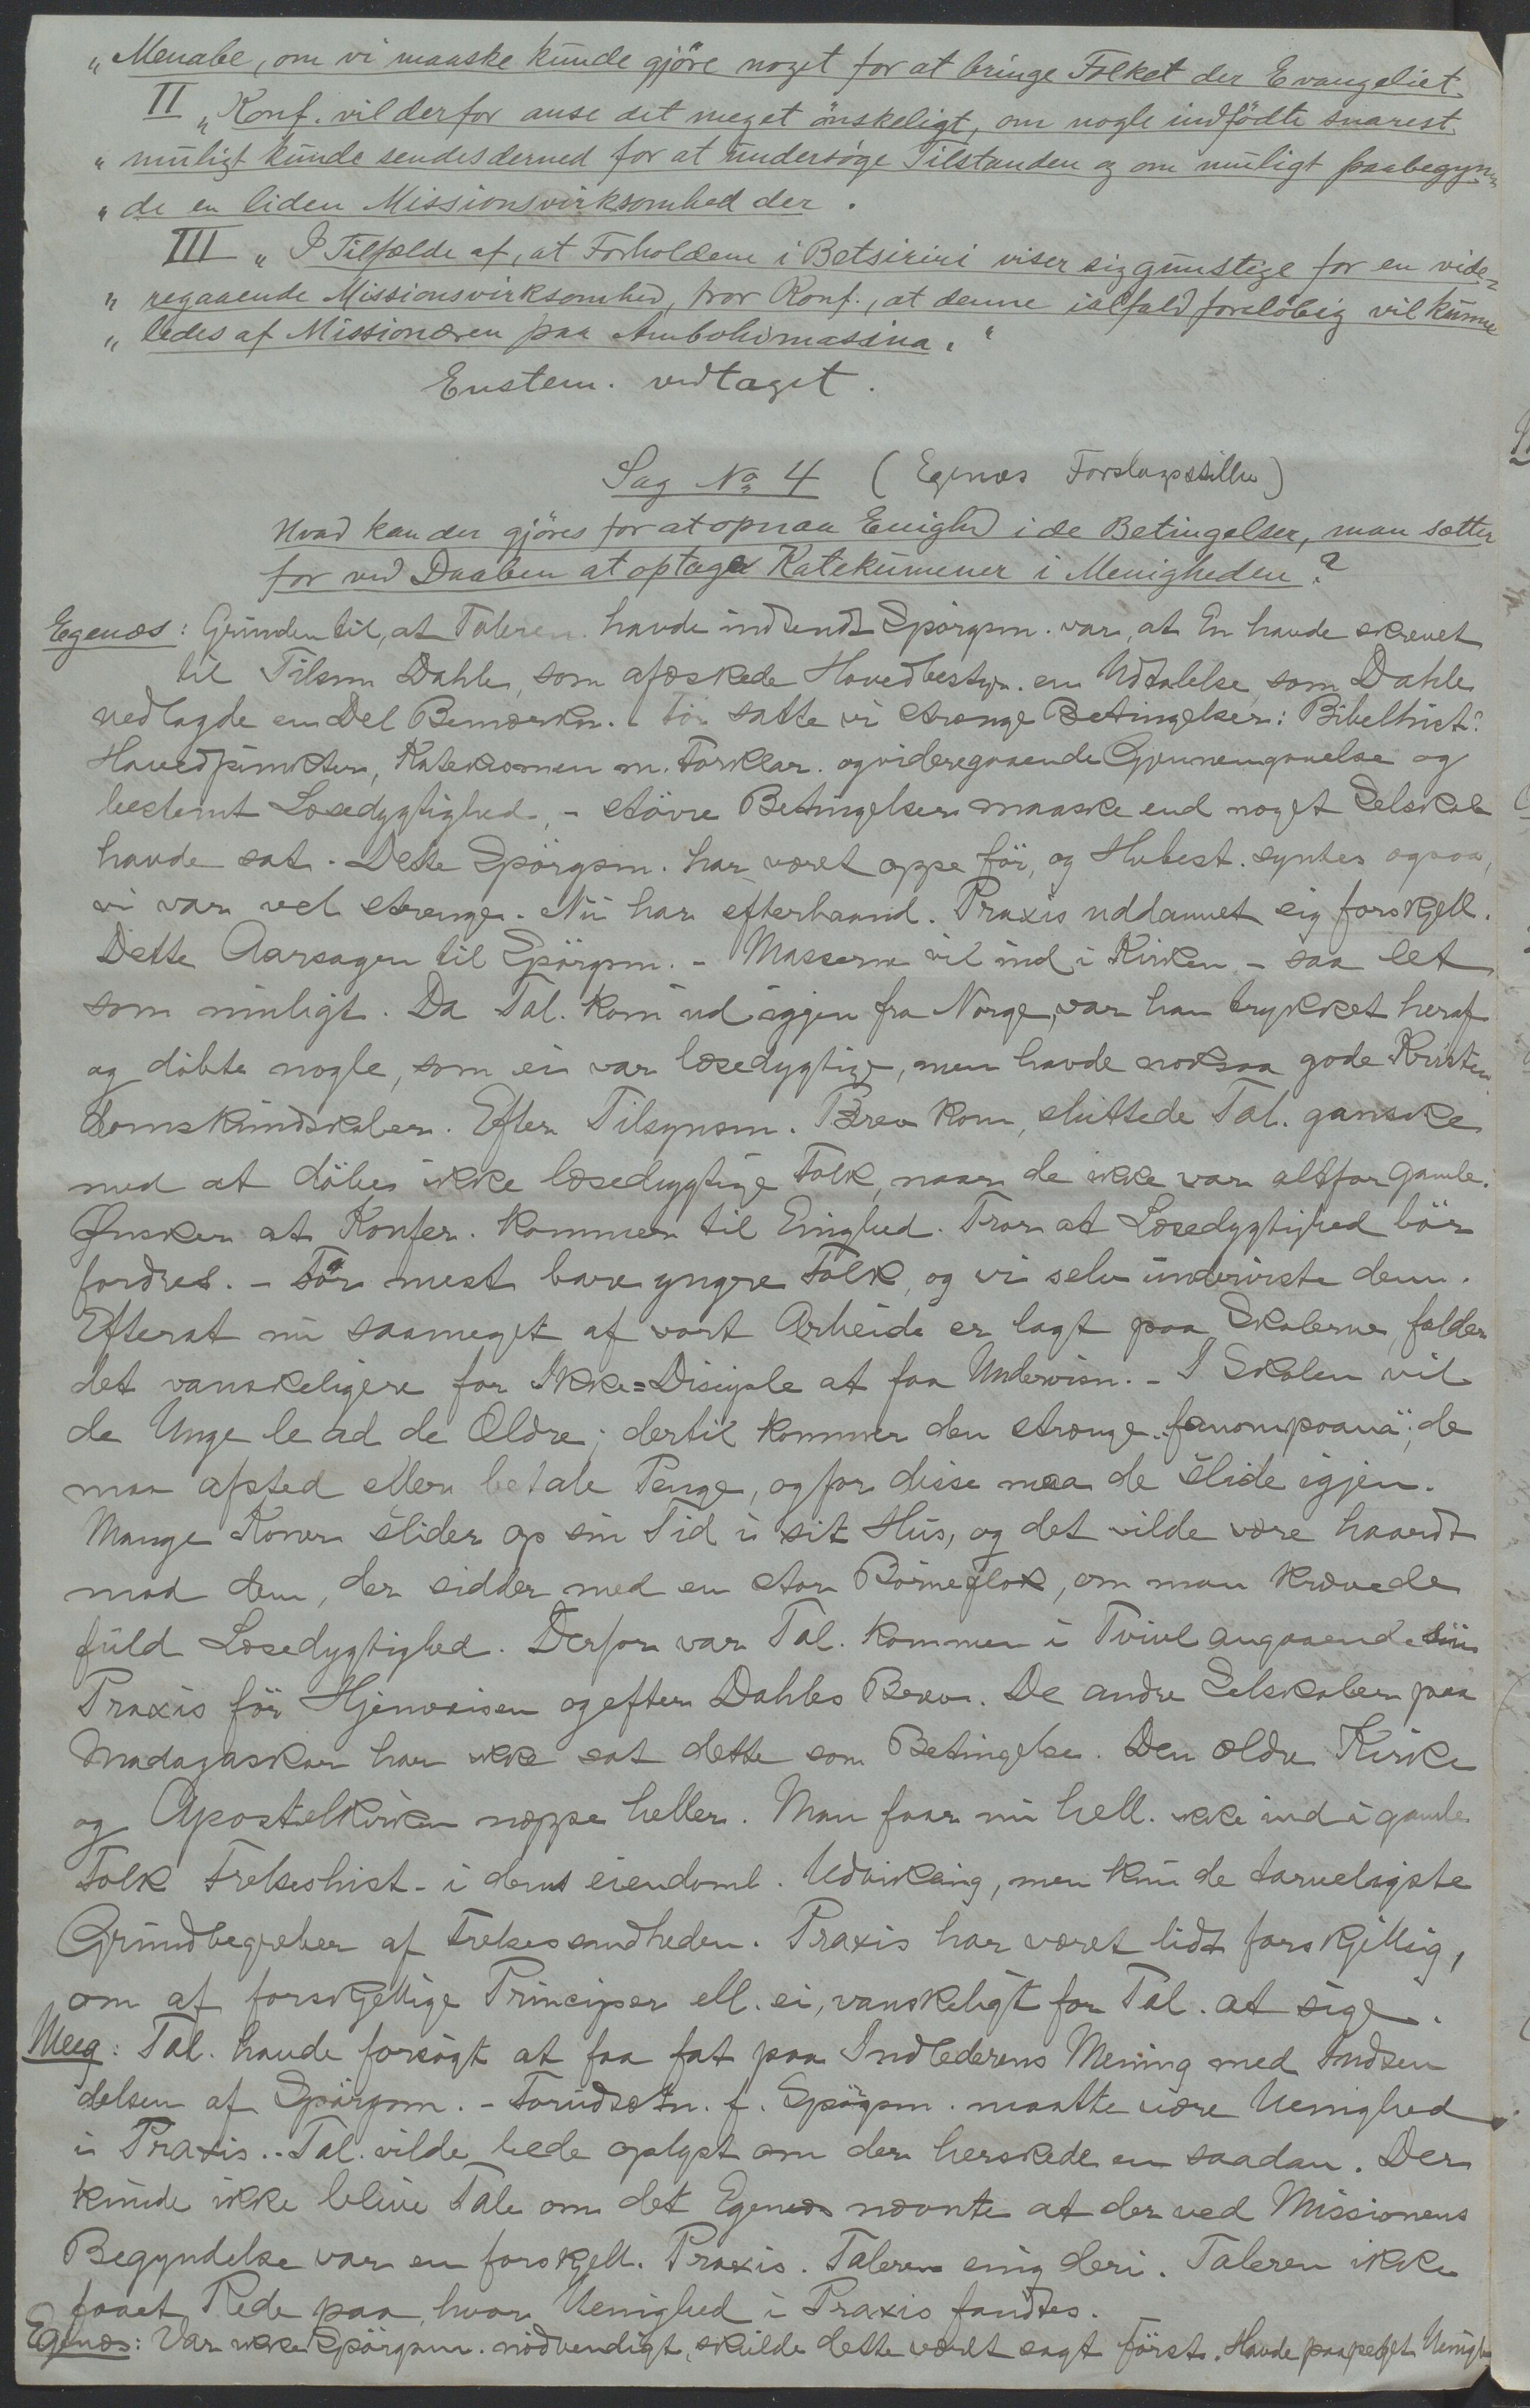 „Menabe, om vi maaske kunde gjöre noget for at bringe Folket der Evangeliet.
II „Konf. vil derfor anse det meget önskeligt, om nogle indfödte snarest
„muligt kunde sendes derned for at undersöge Tilstanden og om muligt paabegyn-
„de en liden Missionsvirksomhed der.
III „I Tilfælde af, at Forholdene i Betsiriri viser sig gunstige for en vide-
„regaaende Missionsvirksomhed, tror Konf., at denne ialfald forelöbig vil kunne
„ledes af Missionæren paa Ambohimasina."
Enstem. vedtaget.
Sag No 4 (Egenæs Forslagsstiller)
Hvad kan der gjöres for at opnaa Enighed i de Betingelser, man sætter
for ved Daaben at optage Katekumener i Menigheden?
Egenæs: Grunden til, at Taleren havde indsendt Spörgsm. var, at En havde skrevet
til Tilsm Dahle, som afæskede Hovedbestyr. en Udtalelse, som Dahle
vedlagde en Del Bemærkn. För satte vi strænge Betingelser: Bibelhist.
Hovedpunkter, Katekismen m. Forklar. og videregaaende Gjennemgaaelse og
bestemt Læsedygtighed, - större Betingelser maaske end noget Selskab
havde sat. Dette Spörgsm. har været oppe för, og Hvbest. syntes ogsaa,
vi var vel strenge. Nu har efterhaand. Praxis uddannet sig forskjell.
Dette Aarsagen til Spörgsm. - Masserne vil ind i Kirken - saa let
som muligt. Da Tal. kom ud igjen fra Norge, var han trykket heraf
og döbte nogle, som ei var læsedygtige, men havde noksaa gode Kristen
domskundskaber. Efter Tilsynsm. Brev kom, sluttede Tal. ganske
med at döbe ikke læsedygtige Folk, naar de ikke var altfor gamle.
Ønsker at Konfer. kommer til Enighed. Tror at Læsedygtighed bör
fordres. - För mest bare yngre Folk, og vi selv underviste dem.
Efterat nu saameget af vort Arbeide er lagt paa Skolerne, falder
det vanskeligere for Ikke-Disciple at faa Undervisn. - I Skolen vil
de Unge le ad de Ældre; dertil kommer den strænge „fanompoana"; de
maa afsted eller betale Penge, og for disse maa de slide igjen.
Mange Koner slider op sin Tid i sit Hus, og det vilde være haardt
mod dem, der sidder med en stor Börneflok, om man krævede
fuld Læsedygtighed. Derfor var Tal. kommen i Tvivl angaaende sin
Praxis för Hjemreisen og efter Dahles Brev. De andre Selskaber paa
Madagaskar har ikke sat dette som Betingelse. Den ældre Kirke
og Apostelkirken neppe heller. Man faar nu hell. ikke ind i gamle
Folk Frelseshist. i dens eiendoml. Udvikling, men kun de tarveligste
Grundbegreber af Frelsessandheden. Praxis har været lidt forskjellig,
om af forskjellige Principer ell. ei, vanskeligt for Tal. at sige.
Meeg: Tal. havde forsögt at faa fat paa Indlederens Mening med Indsen
delsen af Spörgsm. - Forudsætn. f. Spögsm. maatte være Uenighed
i Praxis. - Tal. vilde bede oplyst om der herskede en saadan. Der
kunde ikke blive Tale om det Egenæs nævnte at der ved Missionens
Begyndelse var en forskjell. Praxis. Taleren enig deri. Taleren ikke
faaet Rede paa, hvor Uenighed i Praxis fandtes.
Egenæs: Var ikke Spörgsm. nödvendigt, skulde dette været sagt först. Havde paapeget Uenigh